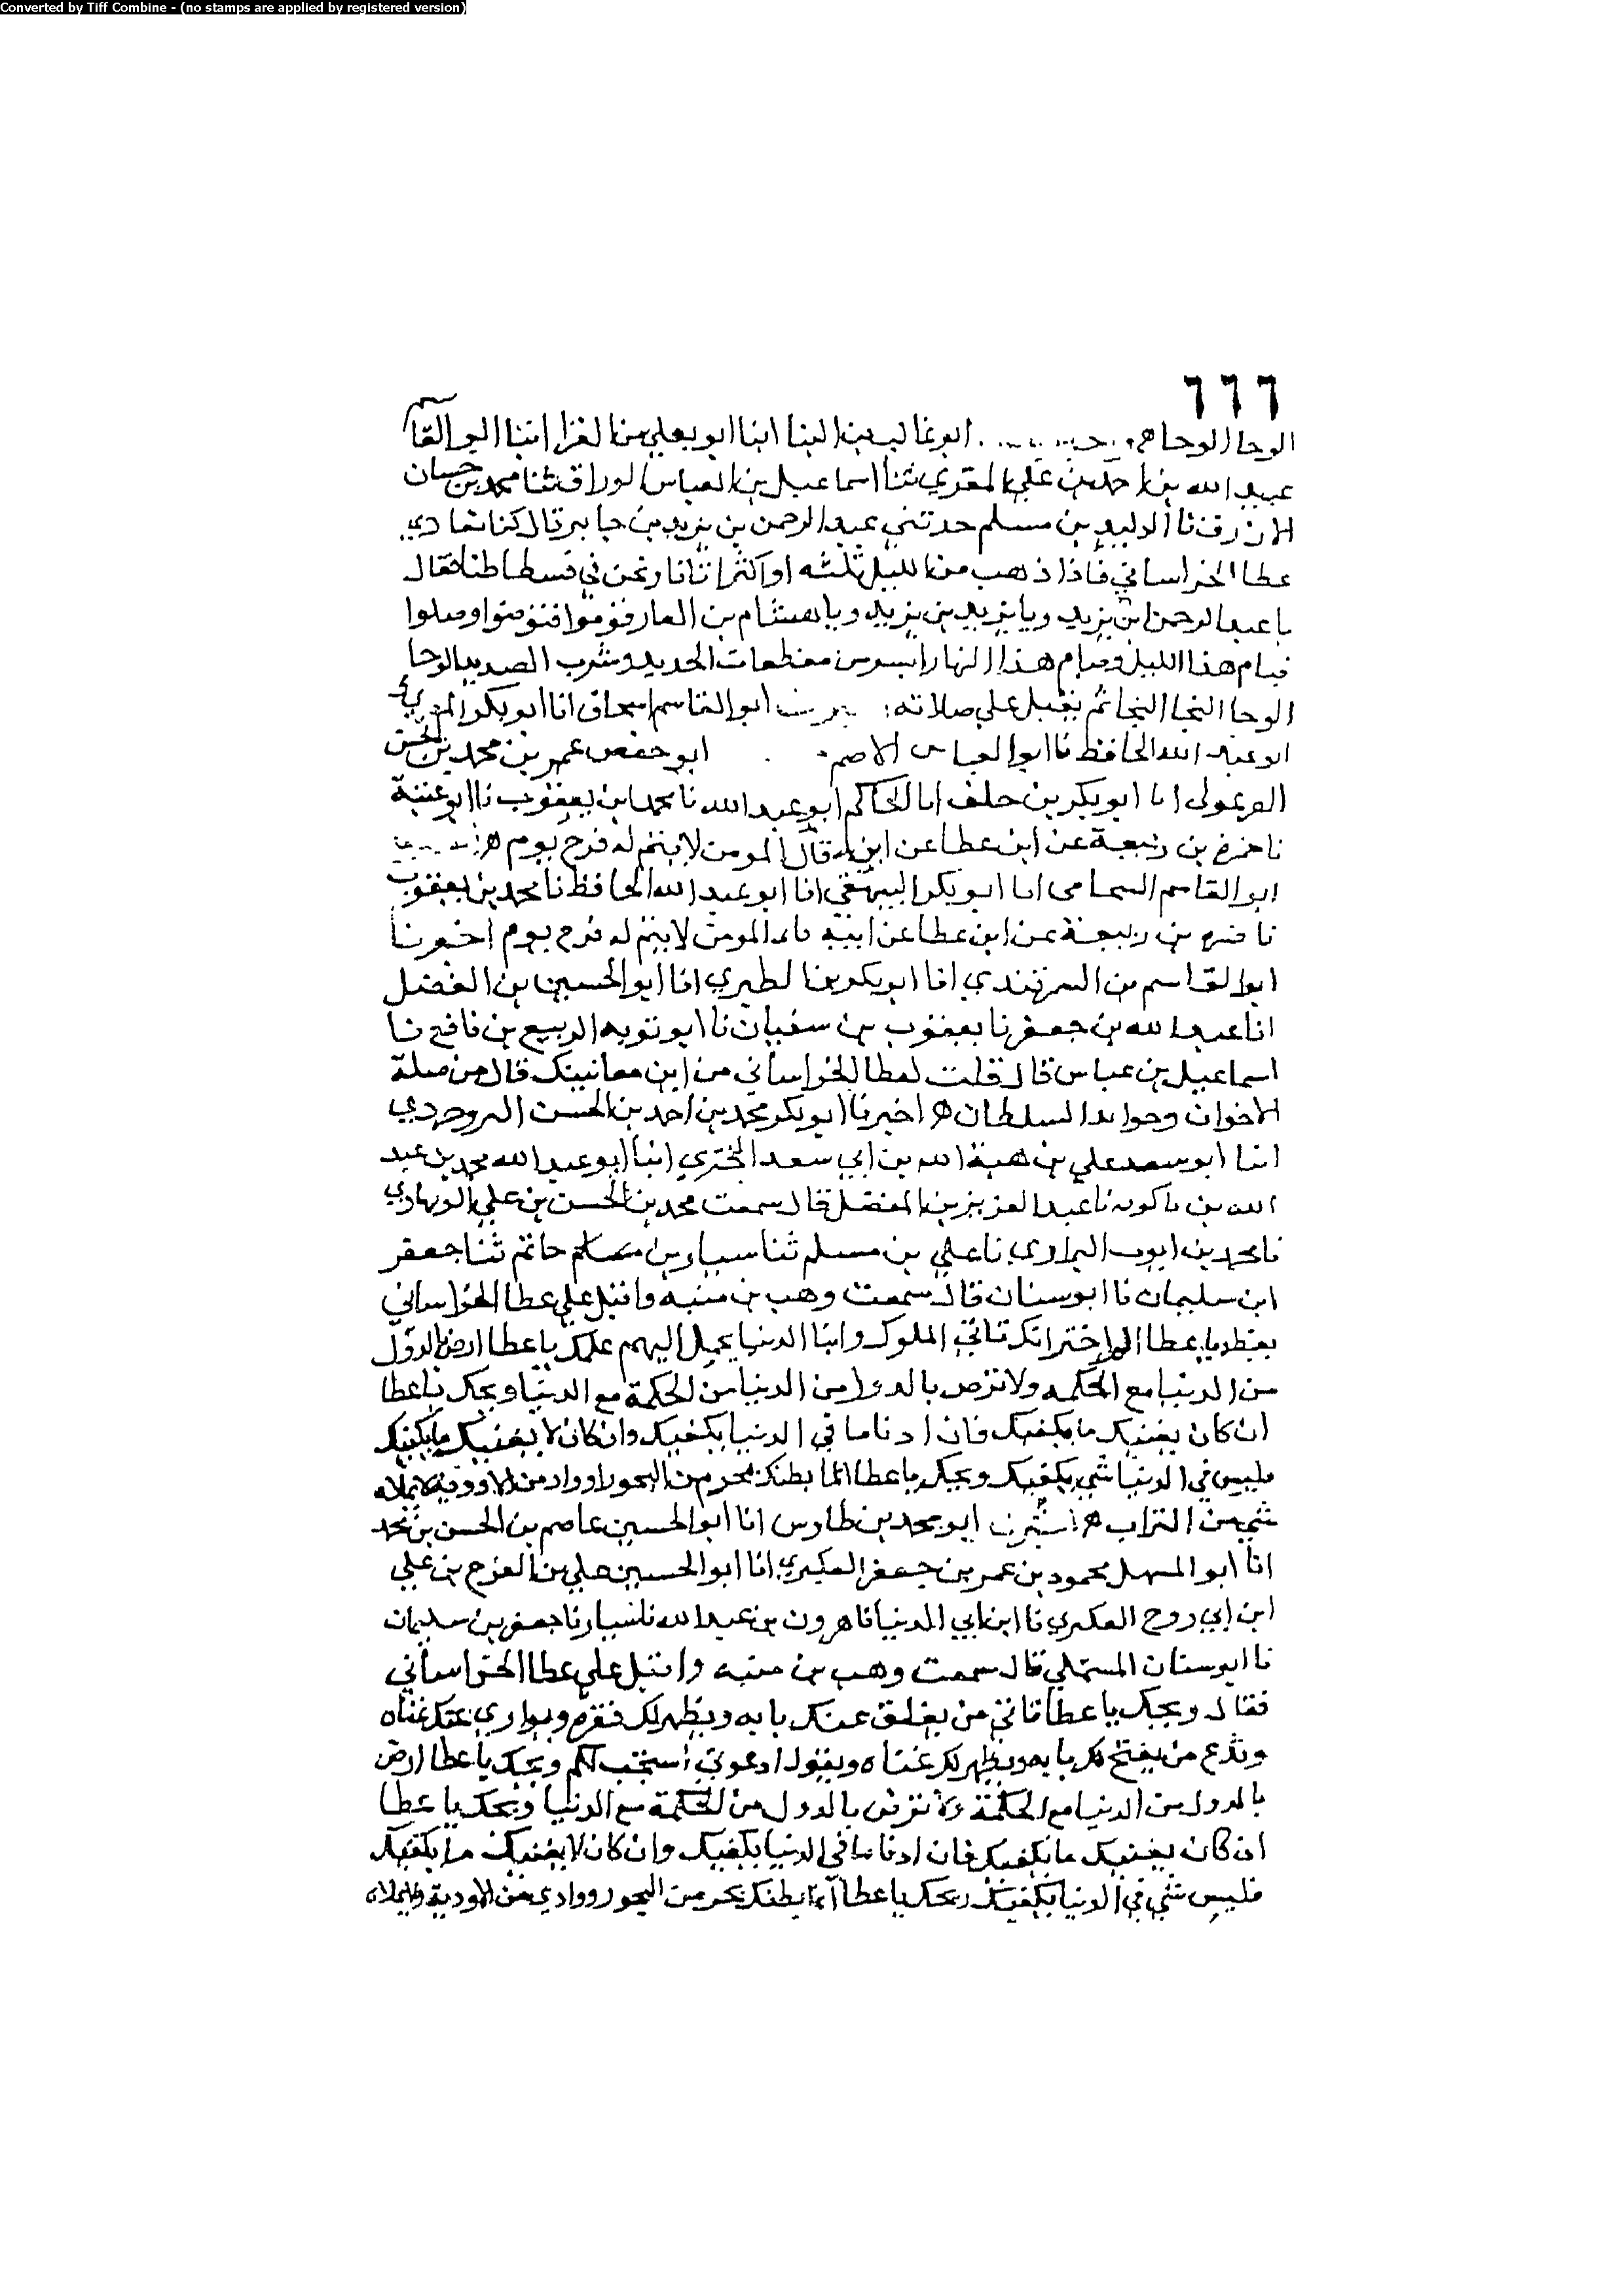 Converted by Tiff Combine - (no stamps are applied by registered version)
٦٦٦
الوحا الوحا ابو غالب بن البنا ابنا ابو يعلى بن الفرا انبا ابو القاسم
عبيد الله بن احمد بن علي المقري ثنا اسماعيل بن العباس الوراق ثنا محمد بن حسان
الازرق نا الوليد بن مسلم حدثني عبد الرحمن بن يزيد بن جابر قال كنا نغازي
عطا الخراساني فاذا ذهب من الليل ثلثه او اكثر نادانا ونحن في فسطاطنا فقال
يا عبد الرحمن بن يزيد ويا يزيد بن يزيد ويا هشام بن الغاز قوموا فتوضوا وصلوا
قيام هذا الليل وصيام هذا النهار ايسر من مقطعات الحديد وشرب الصديد الوحا
الوحا النجا النجا ثم يقبل على صلاته ابو القاسم اسحاق انا ابو بكر
ابو عبد الله الحافظ نا ابو العباس الاصم ابو حفص عمر بن محمد بن الحسن
انا ابو بكر بن خلف انا الحاكم ابو عبد الله نا محمد بن يعقوب نا ابو عتبة
نا ضمرة بن ربيعة عن ابن عطا عن ابيه قال المومن لا يتم له فرح يوم
ابو القاسم الشحامي انا ابو بكر البيهقي انا ابو عبد الله الحافظ نا محمد بن يعقوب
نا ضمرة بن ربيعة عن ابن عطا عن ابيه قال المومن لا يتم له فرح يوم اخبرنا
ابو القاسم بن السمرقندي انا ابو بكر بن الطبري انا ابو الحسين بن الفضل
انا عبد الله بن جعفر نا يعقوب بن سفيان نا ابو توبه الربيع بن نافع نا
اسماعيل بن عياش قال قلت لعطا الخراساني من اين معاشك قال من صلة
الاخوان وجوائز السلطان اخبرنا ابو بكر محمد بن احمد بن الحسن البروجردي
انبا ابو سعد علي بن عبد الله بن ابي سعد الحيري انبا ابو عبد الله محمد بن عبد
الله بن باكويه نا عبد العزيز بن الفضل قال سمعت محمد بن الحسن بن علي
نا محمد بن ايوب الرازي نا علي بن مسلم ثنا سيار بن حاتم ثنا جعفر
ابن سليمان نا ابو سنان قال سمعت وهب بن منبه واقبل على عطا الخراساني
يعظه يا عطا الم اخبر انك تاتي الملوك وابنا الدنيا تحمل اليهم علمك يا عطا ارض بالدون
من الدنيا مع الحكمه ولا ترض بالدون من الدنيا من الحكمة مع الدنيا ويحك يا عطا
ان كان يغنيك ما يكفيك فان ادنا ما في الدنيا يكفيك وان كان لا يغنيك ما يكفيك
فليس في الدنيا شي يكفيك ويحك يا عطا انما بطنك بحر من البحور او واد من الاودية لا يملاه
شي من التراب ابو محمد بن طاوس انا ابو الحسين عاصم بن الحسن بن محمد
انا ابو السهل محمود بن عمر بن جعفر العكبري انا ابو الحسين علي بن الفرج بن علي
ابن ابي روح العكبري نا ابن ابي الدنيا نا هرون بن عبد الله نا سيار نا جعفر بن سليمان
نا ابو سنان القسملي قال سمعت وهب بن منبه واقبل على عطا الخراساني
فقال ويحك يا عطا تاتي من يغلق عنك بابه ويظهر لك فقره ويواري عنك غناه
وتدع من يفتح لك بابه ويظهر لك غناه ويقول ادعوني استجب لكم ويحك يا عطا ارض
بالدون من الدنيا مع الحكمة ولا ترض بالدون من الحكمة مع الدنيا ويحك يا عطا
ان كان يغنيك ما يكفيك فان ادنا ما في الدنيا يكفيك وان كان لا يغنيك ما يكفيك
فليس شي في الدنيا يكفيك ويحك يا عطا انما بطنك بحر من البحور ووادي من الاودية ولا يملاه